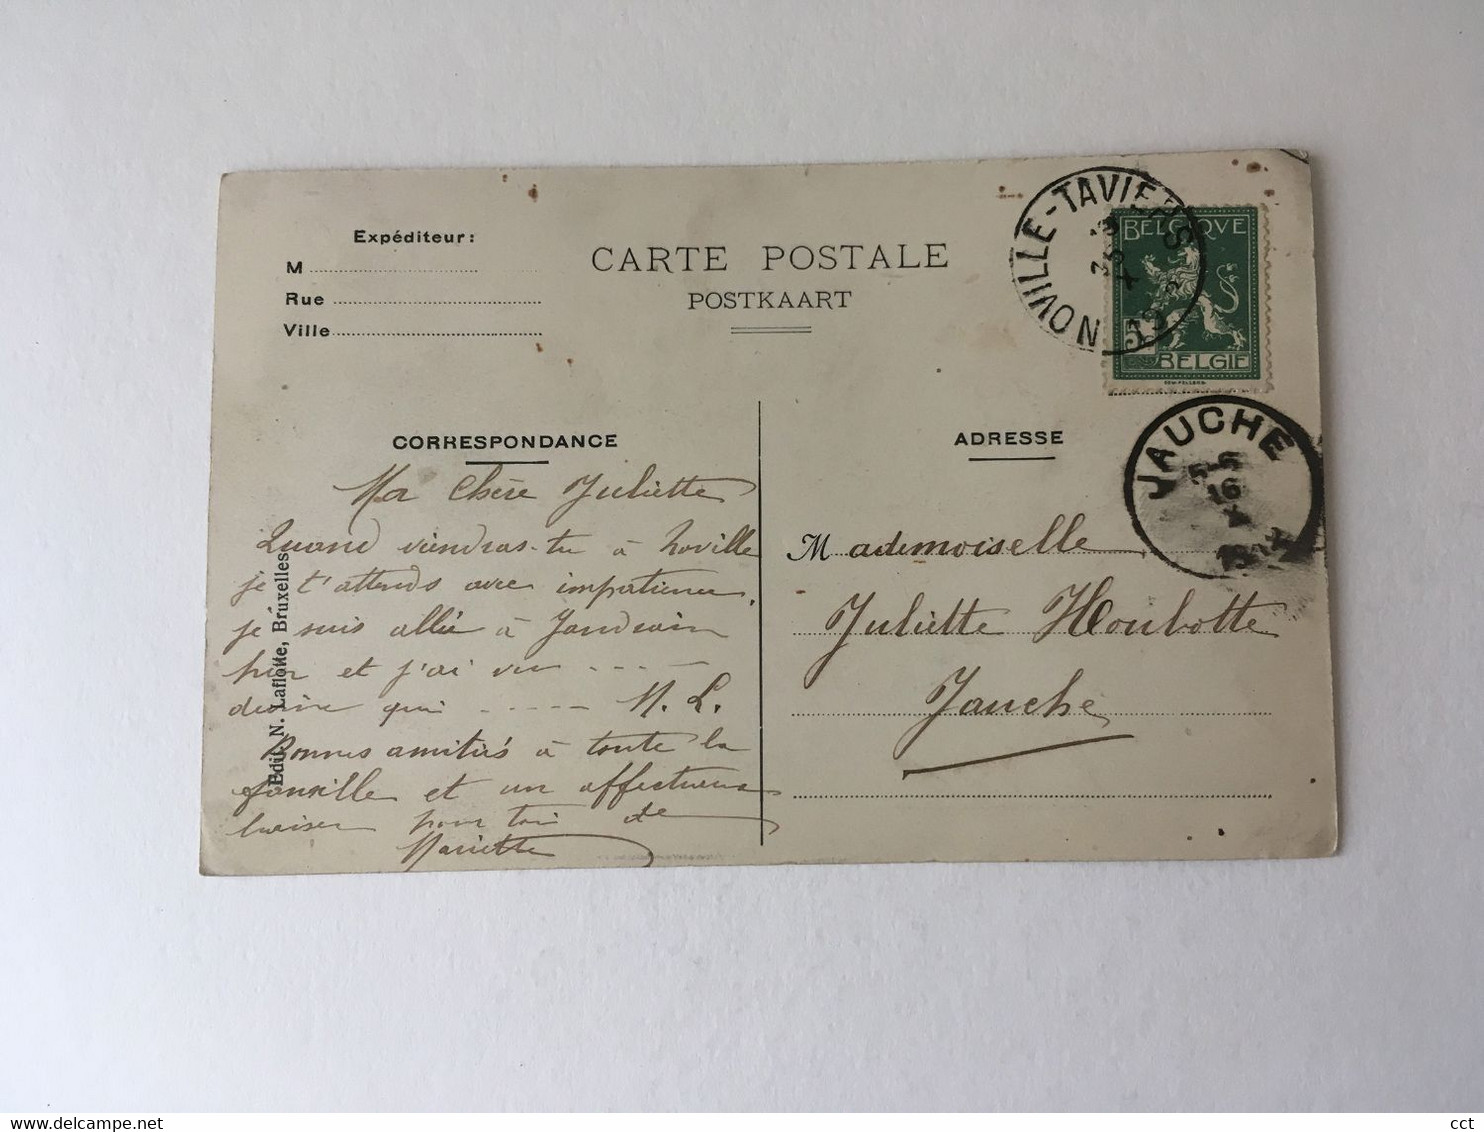 Expéditeur:
M
Rue
Ville
CARTE POSTALE
POSTKAART
NOVILLE-TAVIERS
BELGIQVE
5
BELGIE
JAUCHE
5-6
16
X
CORRESPONDANCE
ADRESSE
Ma Chère Juliette
Quand viendras-tu à Noville
je t'attends avec impatience.
je suis allée à Jandrain
hier et j'ai vu - - - -
devine qui - - - - - M. L.
Bonnes amitiés à toute la
famille et un affectueux
baiser pour toi de
Mariette
Mademoiselle
Juliette Houbotte
Jauche
Edit. N. Laflotte, Bruxelles
cct